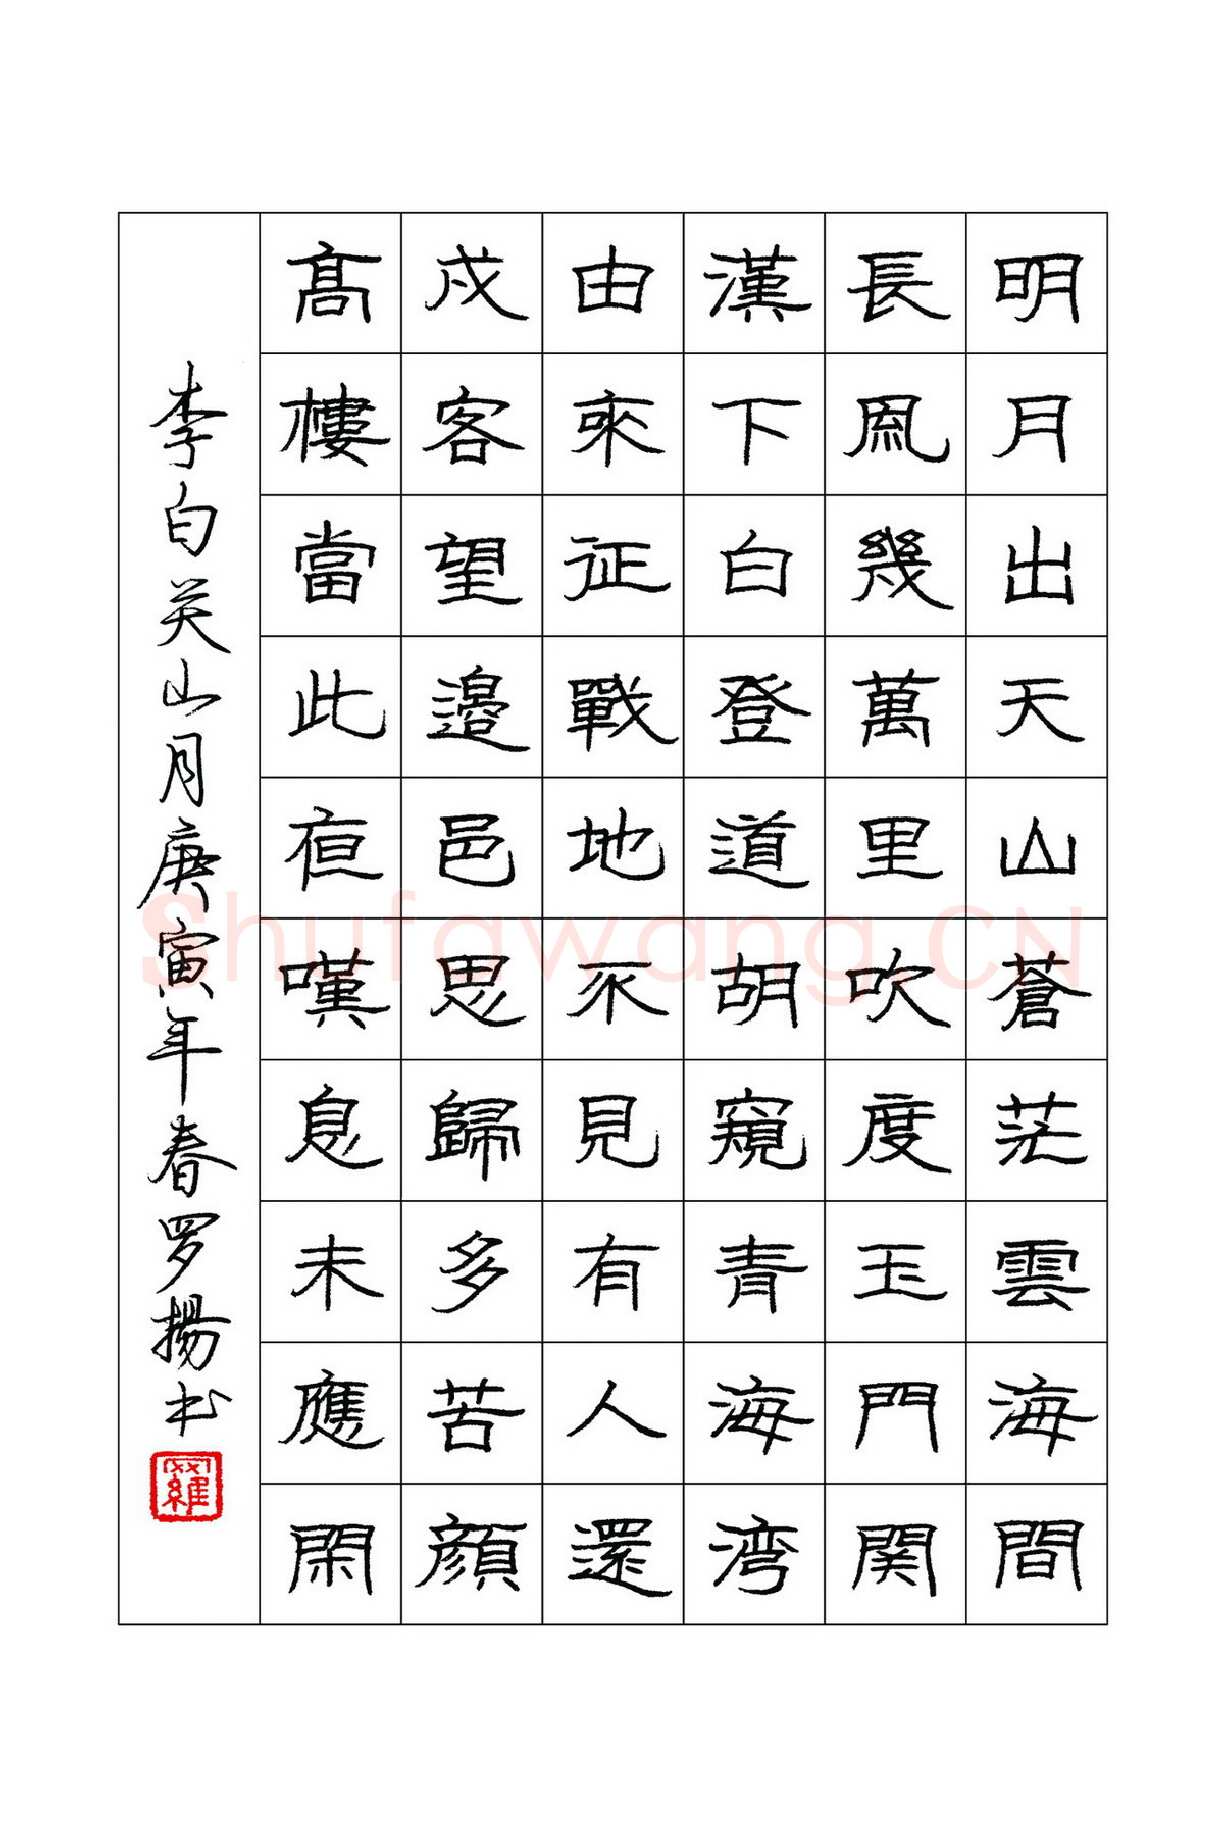 明月出天山蒼茫雲海間
長風幾萬里吹度玉門関
漢下白登道胡窺青海湾
由來征戰地不見有人還
戍客望邊邑思歸多苦顏
高樓當此夜嘆息未應閑
李白关山月庚寅年春罗揚书
羅
Shufawang.CN